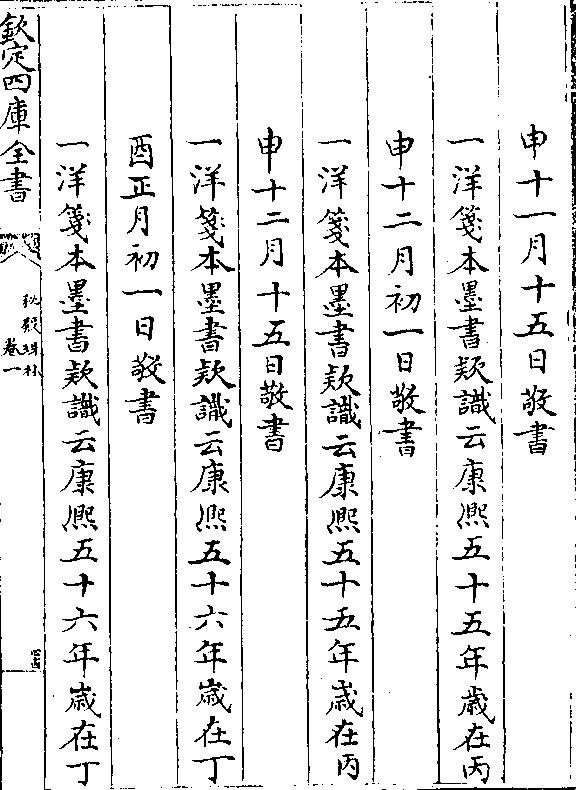 申十一月十五日敬書
一洋箋本墨書款識云康熈五十五年歲在丙
申十二月初一日敬書
一洋箋本墨書款識云康熈五十五年歲在丙
申十二月十五日敬書
一洋箋本墨書款識云康熈五十六年歲在丁
酉正月初一日敬書
一洋箋本墨書款識云康熈五十六年歲在丁
欽定四庫全書
秘殿珠林
卷一